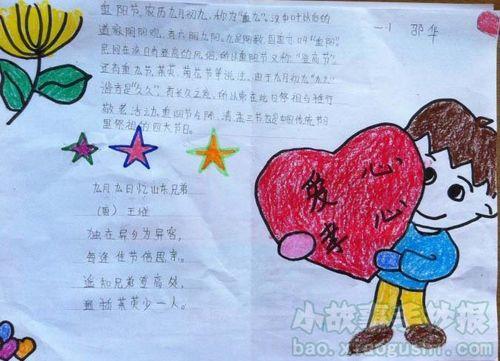 重阳节,农历九月初九,称为"重九"。汉中叶以后的
道教阴阳观,有六阴九阳。九是阳数,固重口叫"重阳"。
民间在该日有登高的风俗,所以重阳节又称"登高节"。
还有重九节、茱萸、菊花节等说法。由于九月初九"九九"
谐音是"久久",有长久之意,所以常在此日祭祖与推行
敬老活动。重阳节与除、清、盂三节也是中国传统节
日里祭祖的四大节日。
一1 邵华
九月九日忆山东兄弟
(唐)王维
独在异乡为异客,
每逢佳节倍思亲。
遥知兄弟登高处,
遍插茱萸少一人。
爱心
孝心
小故事手抄报
bao.xiaogushi.com